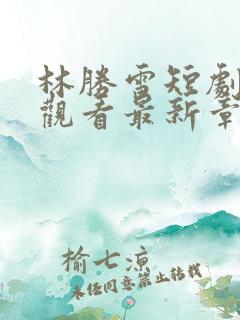 林勝雪短劇
觀看最新章
榆七涼
未任同意禁止转载